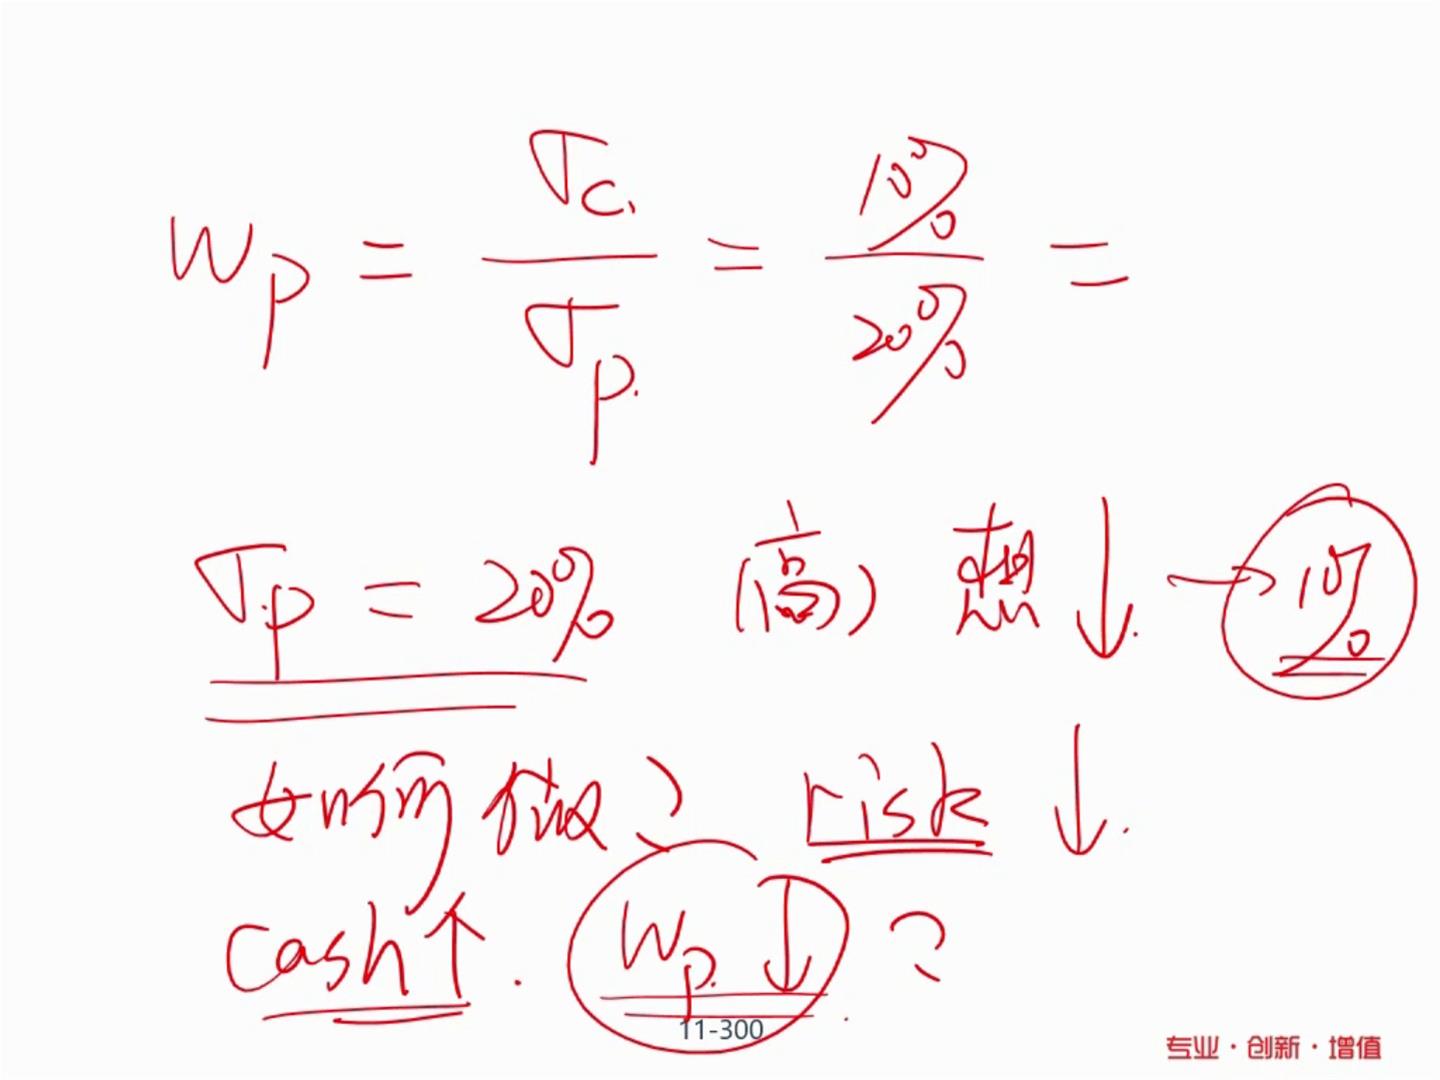 Wp = σc / σp = 10% / 20% =
σp = 20% (高) 想 ↓ → 10%
如何做? risk ↓
cash ↑. Wp ↓ ?
11-300
专业·创新·增值